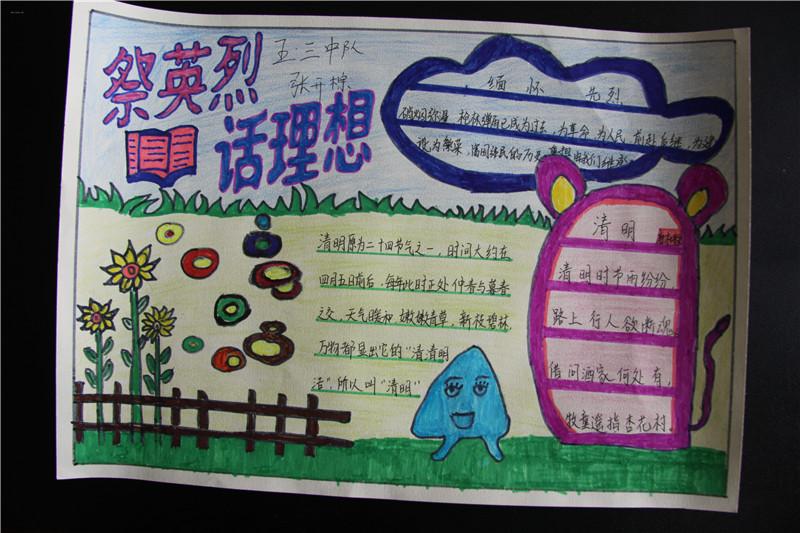 祭英烈
话理想
五.三中队
缅怀先烈
硝烟弥漫 枪林弹雨已成为过去,为革命 为人民 前赴后继,为建
清明原为二十四节气之一,时间大约在
四月五日前后,每年此时正处仲春与暮春
之交,天气暖和 嫩嫩青草,新枝碧林,
万物都显出它的"清清明
洁",所以叫"清明"
清明
清明时节雨纷纷,
路上行人欲断魂。
借问酒家何处有,
牧童遥指杏花村。